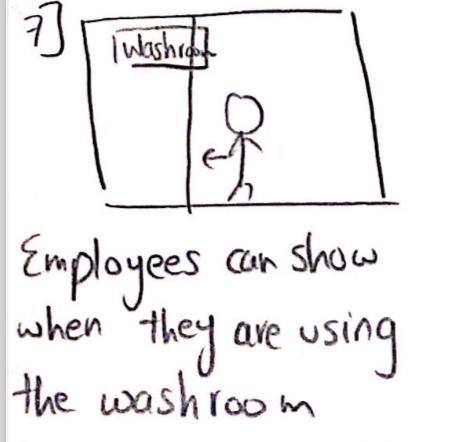 7]
Washroom
Employees can show
when they are using
the washroom